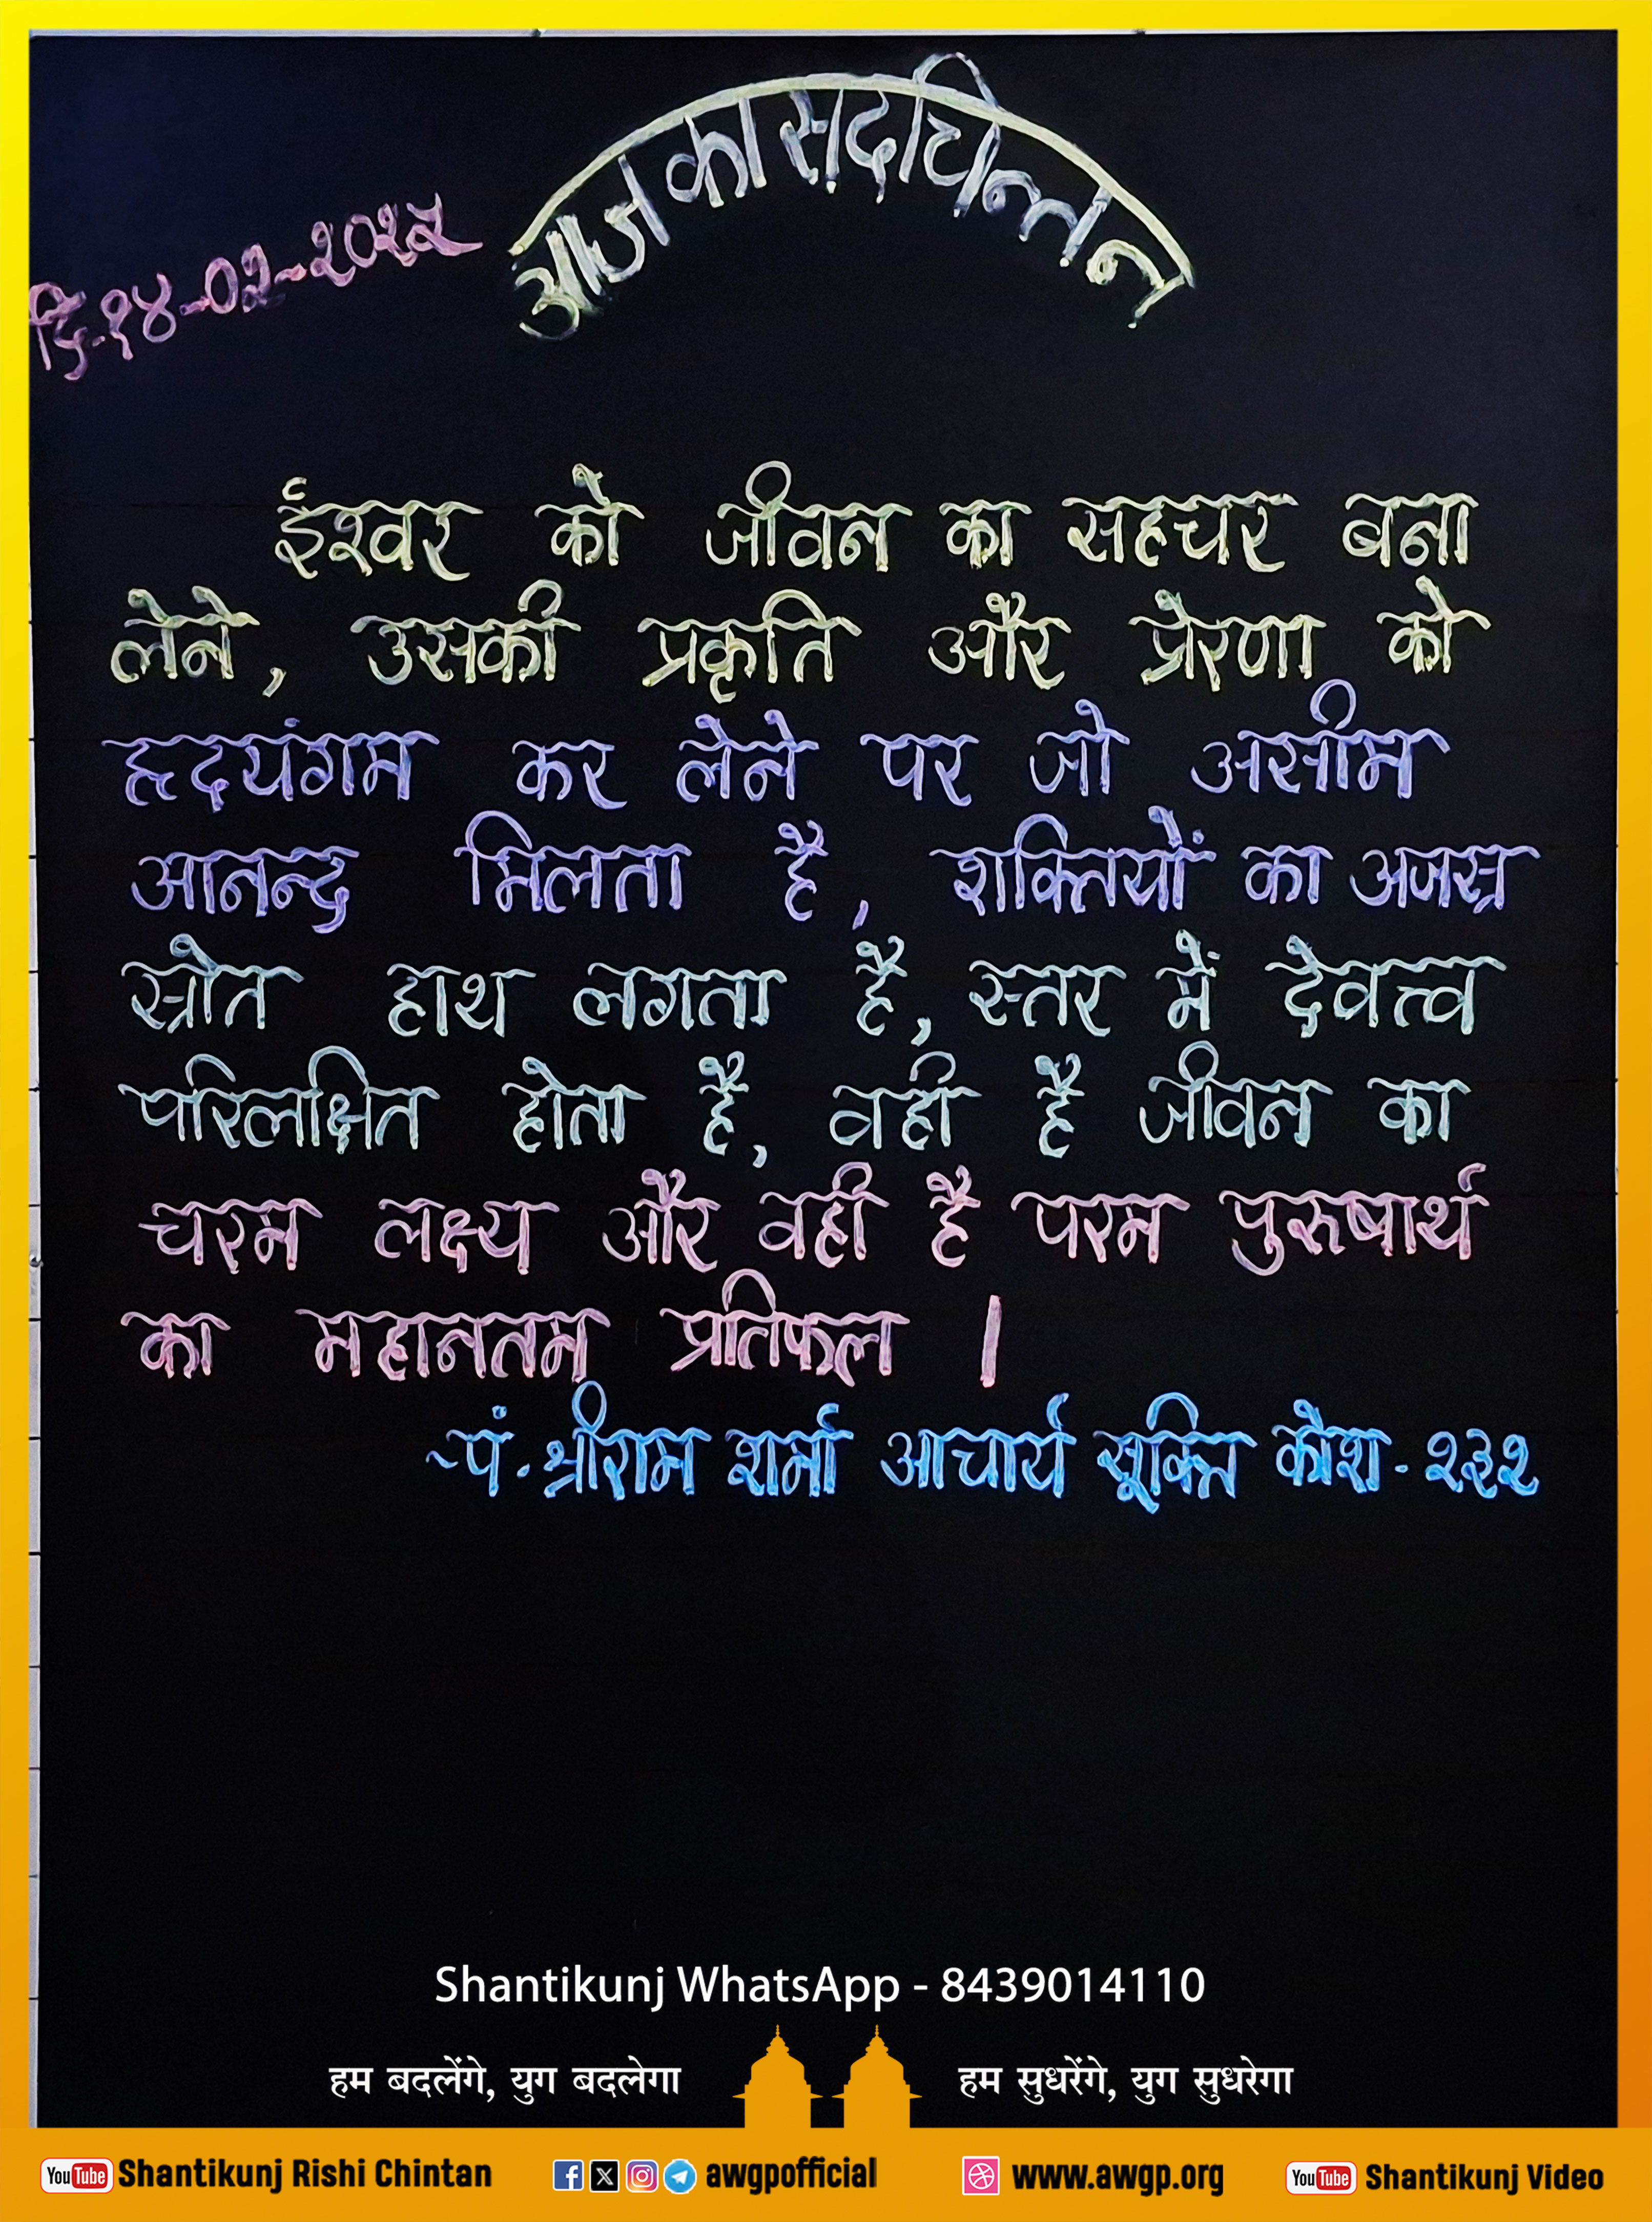 आज का सद्चिन्तन
दि.१४-०२-२०२५
ईश्वर को जीवन का सहचर बना
लेने, उसकी प्रकृति और प्रेरणा को
हृदयंगम कर लेने पर जो असीम
आनन्द मिलता है, शक्तियों का अजस्र
स्रोत हाथ लगता है, स्तर में देवत्त्व
परिलक्षित होता है, वही है जीवन का
चरम लक्ष्य और वही है परम पुरूषार्थ
का महानतम प्रतिफल ।
-पं.श्रीराम शर्मा आचार्य सूक्ति कोश-२३२
Shantikunj WhatsApp - 8439014110
हम बदलेंगे, युग बदलेगा हम सुधरेंगे, युग सुधरेगा
YouTube Shantikunj Rishi Chintan awgpofficial www.awgp.org YouTube Shantikunj Video